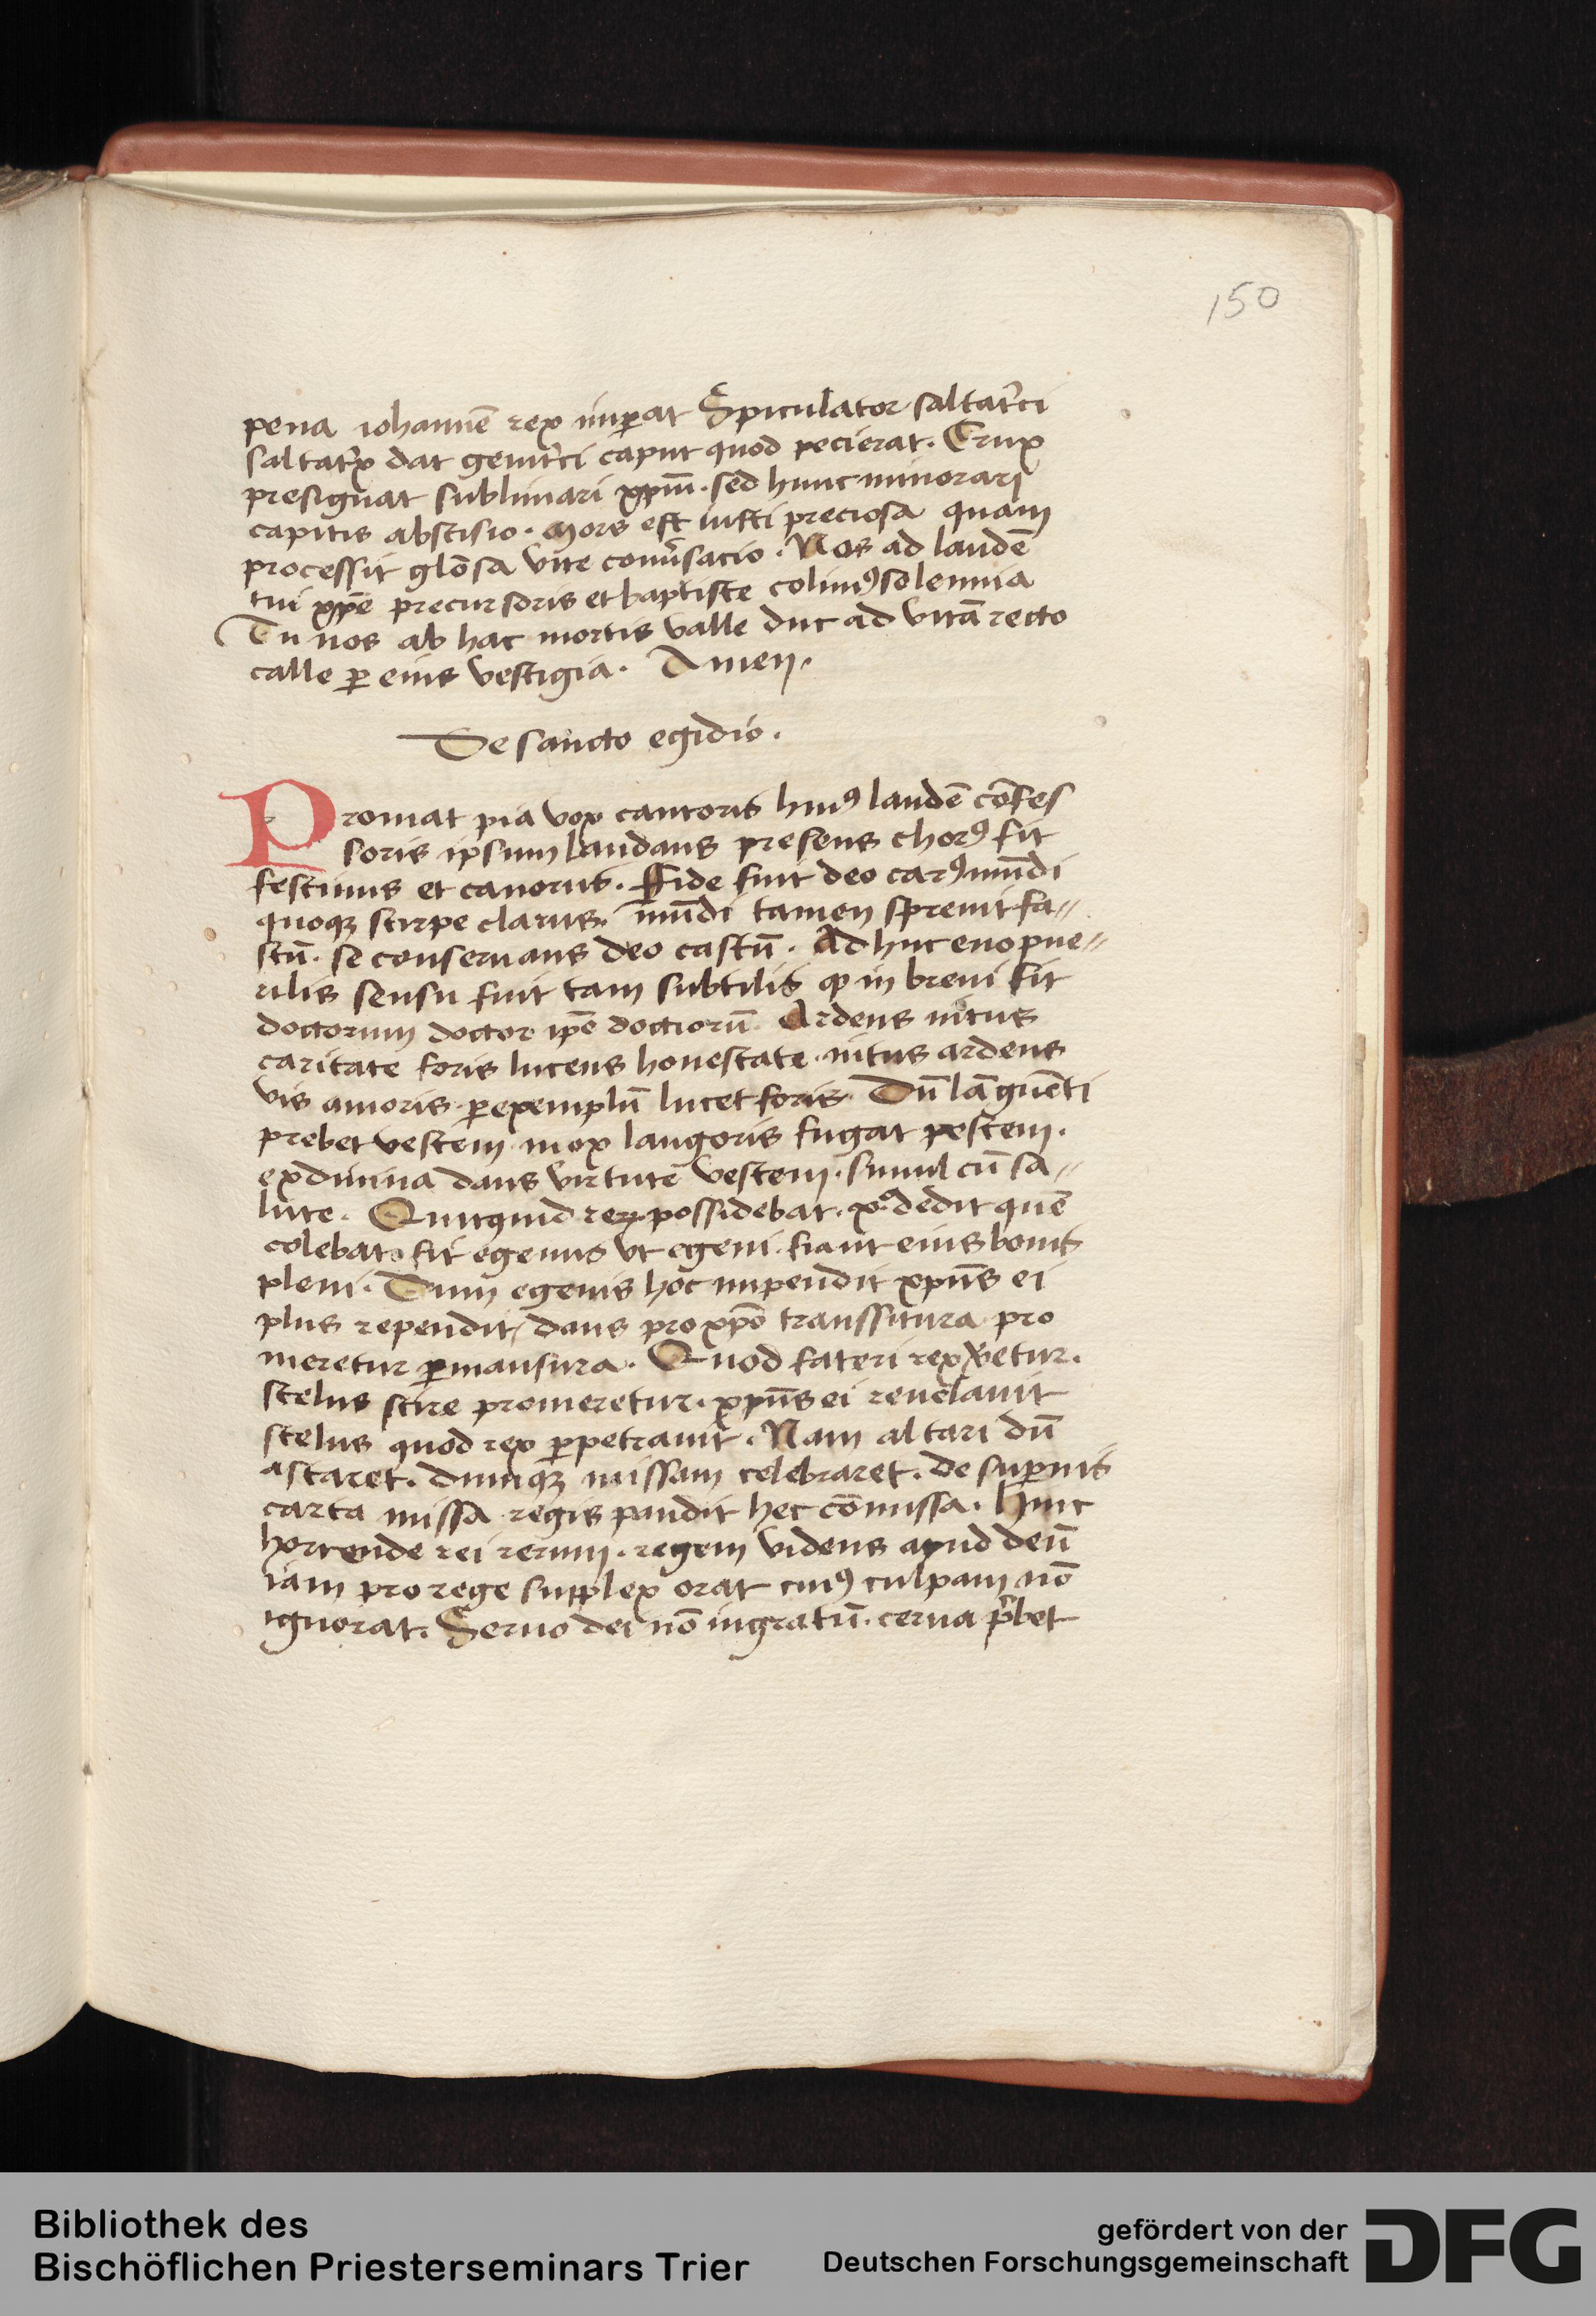 150
pena iohannē rex imꝑat Spiculator saltat'ci
saltat'x dat genit'ci caput quod pecierat. Crux
presignat sublimari xp̄m. sed hunc minorari
capitis abscisio. Mors est iusti preciosa quam
processit glōsa vite conu'sacio. Nos ad laudē
tui xp̄e precursoris et baptiste colimꝰ solennia
Tu nos ab hac mortis valle duc ad vitā recto
calle ꝑ eius vestigia. Amen.
De sancto egidio.
Promat pia vox cantoris huiꝰ laudē cōfes
soris ipsum laudans presens chorꝰ sit
festiuus et canorus. Fide fuit deo carꝰ mūdi
quoqꝫ stirpe clarus. mūdi tamen spreuit fa〃
stū. se conseruans deo castū. Ad huc euo pue〃
rilis sensu fuit tam subtilis ꝙ in breui fit
doctorum doctor ip̄e doctiorū. Ardens intus
caritate foris lucens honestate. intus ardens
vis amoris. ꝑ exemplū lucet foris. Dū lāguēti
prebet vestem mox langoris fugat pestem.
ex diuina dans virtutē vestem. simul cū sa〃
lute. Quitquid rerꝫ possidebat. xº dedit quē
colebat. fit egenus vt egeni. fiant eius bonis
pleni. Dum egenis hoc impendit xp̄us ei
plus rependit, dans pro xp̄o transsitura pro
meretur ꝑmansura. Quod fateri rex v'etur.
scelus scire promeretur. xp̄us ei reuelauit
scelus quod rex ꝑpetrauit. Nam altari dū
astaret. dumqꝫ missam celebraret. de suꝑnis
carta missa regis pandit hec cōmissa. Hinc
horrende rei rerum. regem videns apud deū
iam pro rege supplex orat cuiꝰ culpam nō
ignorat. Seruo dei nō ingratū. cerua p'bet
Bibliothek des
Bischöflichen Priesterseminars Trier
gefördert von der
Deutschen Forschungsgemeinschaft
DFG